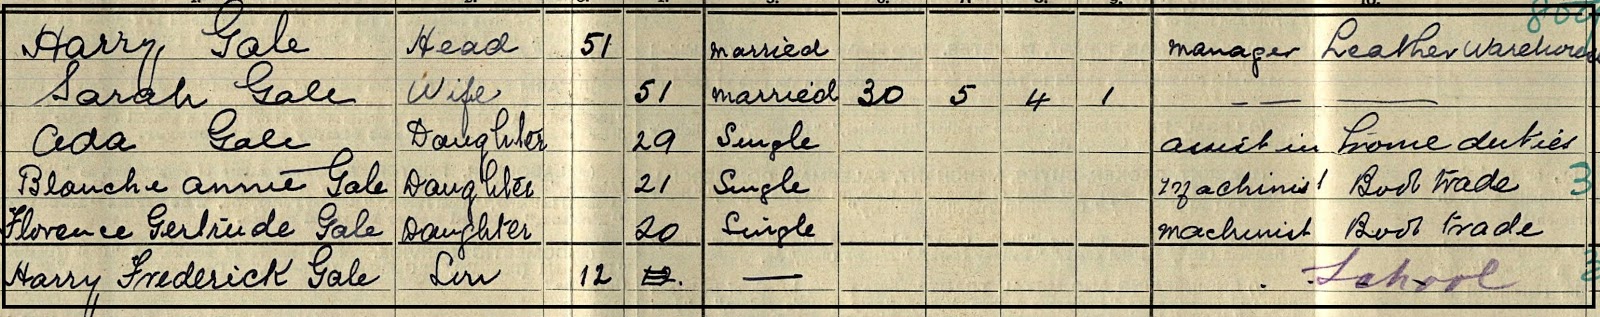 Harry Gale Head 51 married manager Leather Warehouse
Sarah Gale Wife 51 married 30 5 4 1 — — ——
Ada Gale Daughter 29 Single assist in home duties
Blanche annie Gale Daughter 21 Single Machinist Boot trade 3
Florence Gertrude Gale Daughter 20 Single machinist Boot trade
Harry Frederick Gale Son 12 — School